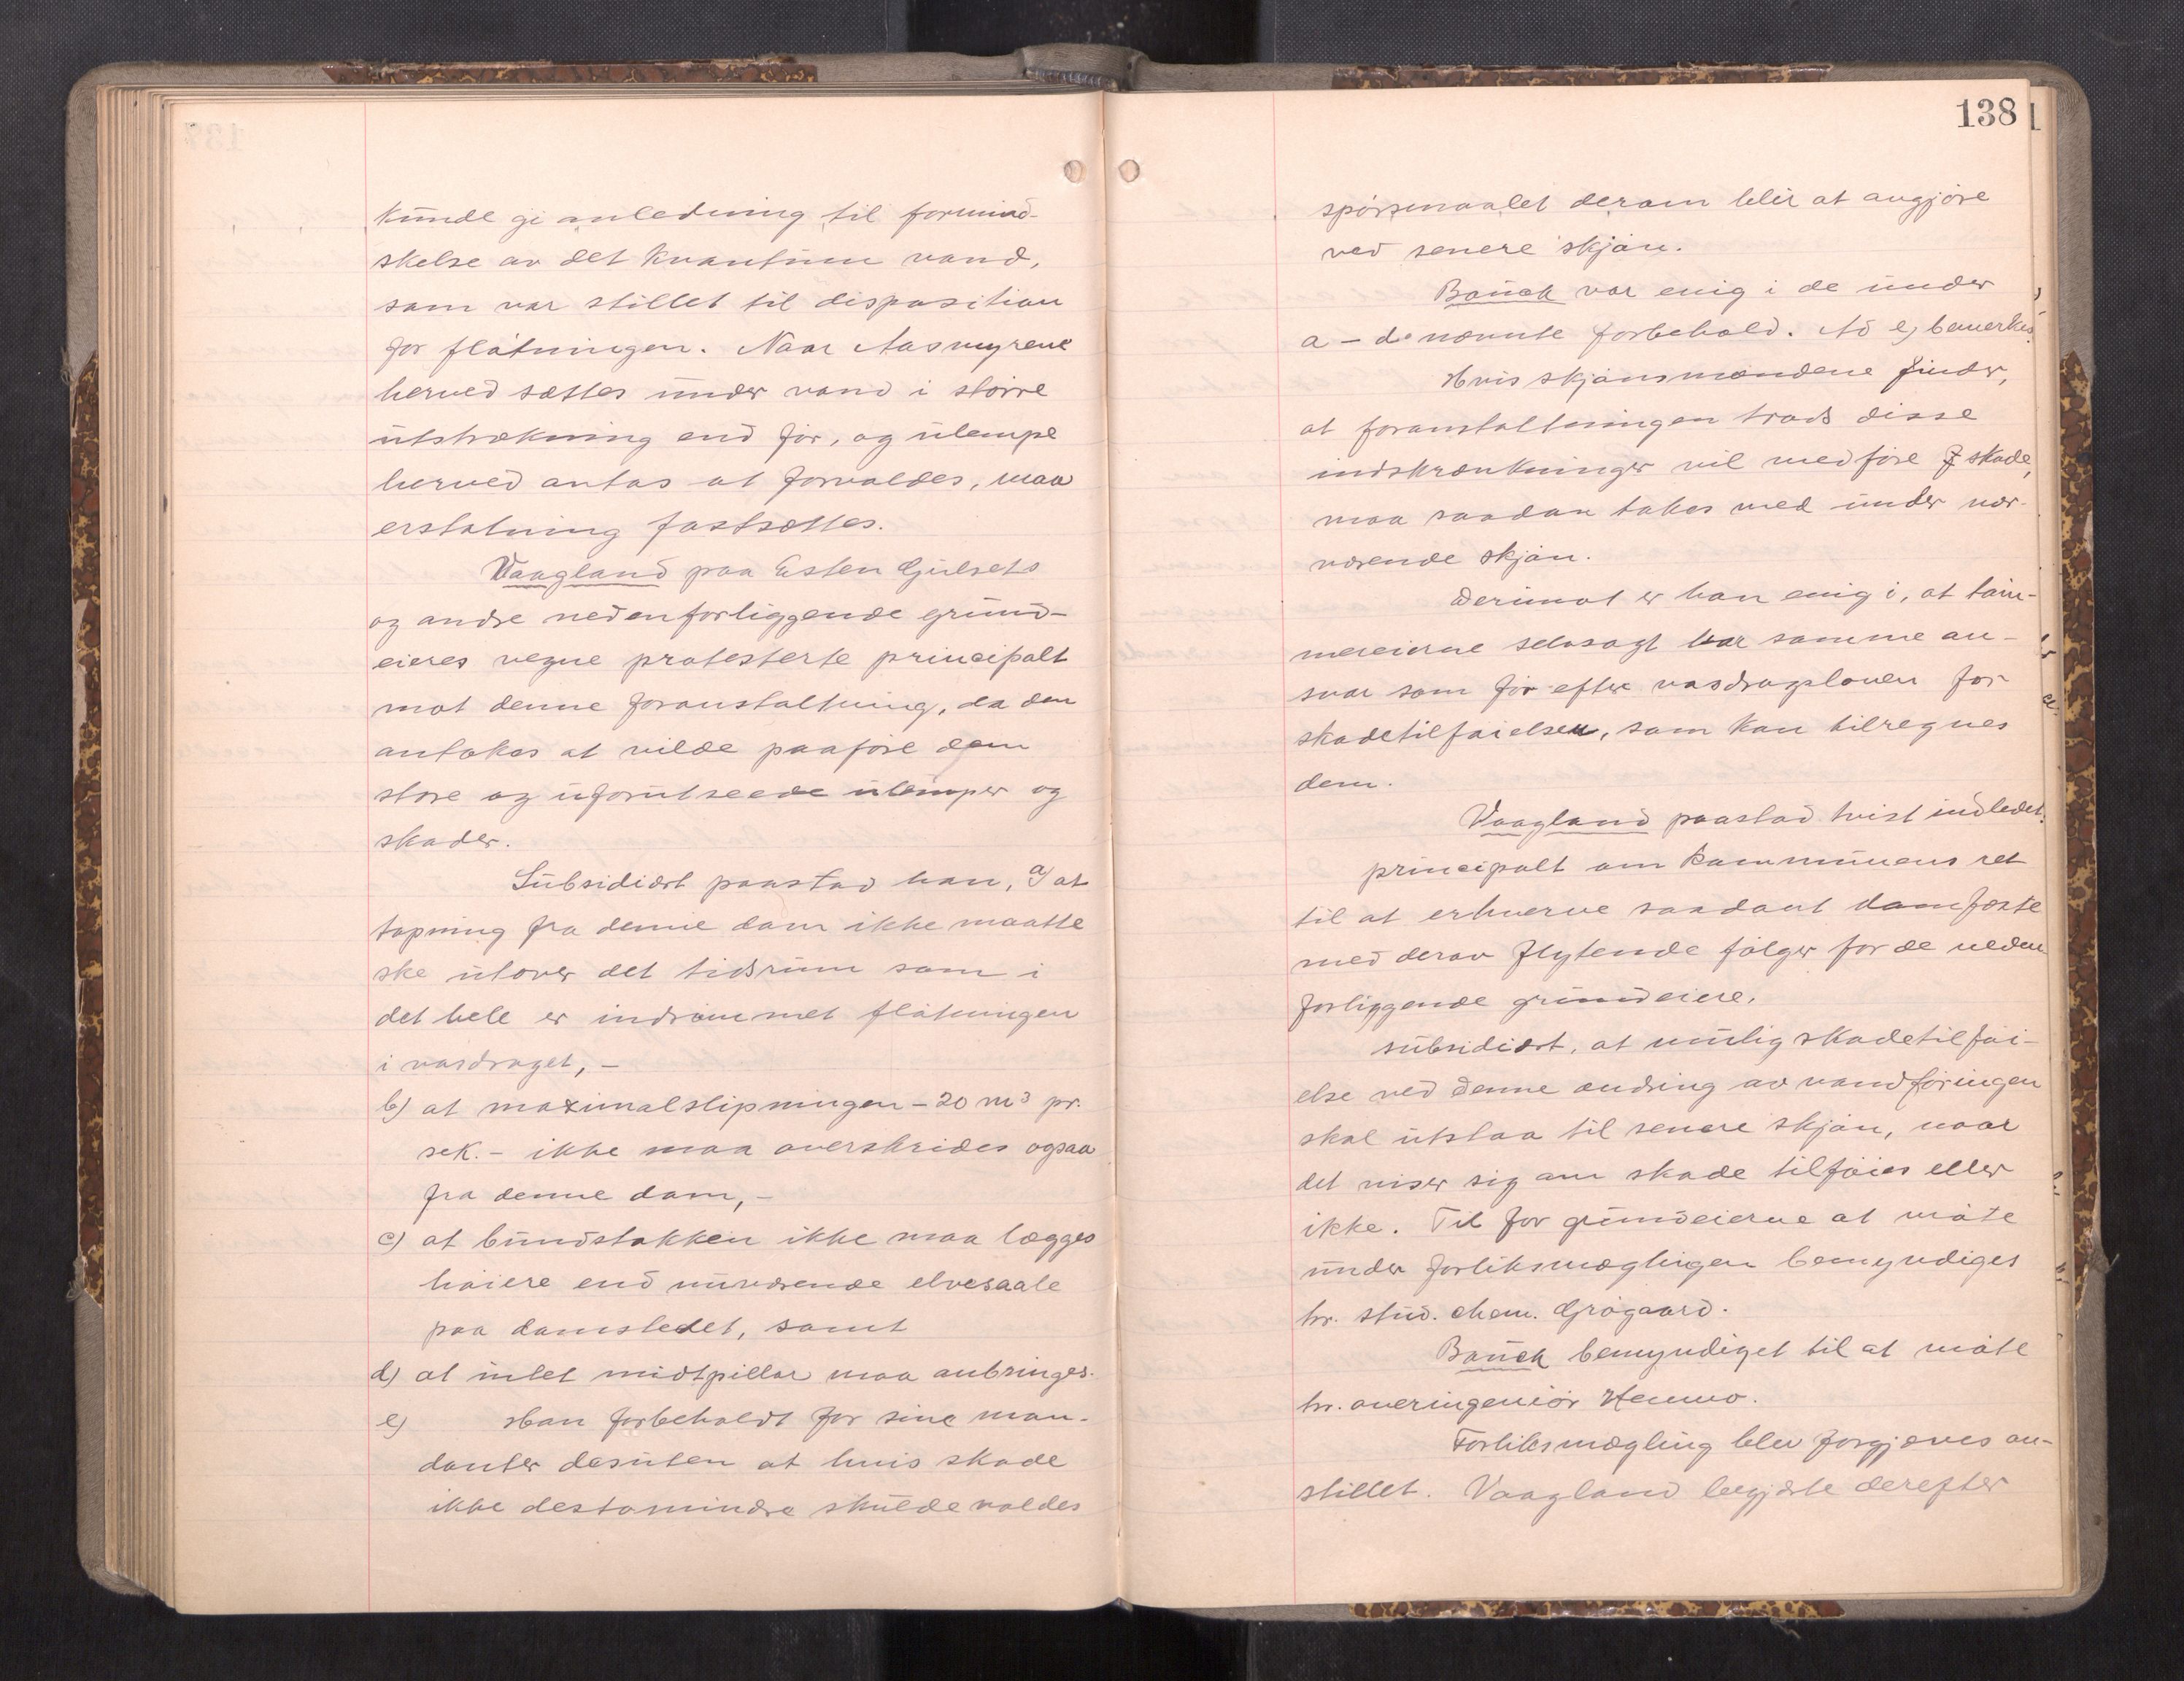 kunde gi anledning til formind-
skelse av det kvantum vand,
som var stillet til disposition
for fløtningen. Naar Aasmyrene
herved sættes under vand i større
utstrækning end før, og ulempe
herved antas at forvoldes, maa
erstatning fastsættes.
Vaagland paa Esten Gjulsets
og andre nedenforliggende grund-
eieres vegne protesterte principalt
mot denne foranstaltning, da den
antokes at vilde paaføre dem
store og uforutseede ulemper og
skader.
Subsidiært paastod han, a) at
tapning fra denne dam ikke maatte
ske utover det tidsrum som i
det hele er indrømmet fløtningen
i vasdraget, –
b) at maximalslipningen – 20 m3 pr.
sek. – ikke maa overskrides ogsaa
fra denne dam, –
c) at bundstokken ikke maa lægges
høiere end nuværende elvesaale
paa damstedet, samt
d) at intet midtpillar maa anbringes.
e) Han forbeholdt for sine man-
danter desuten at hvis skade
ikke destomindre skulde voldes
138
spørsmaalet derom blir at avgjøre
ved senere skjøn.
Bauck var enig i de under
a – d nævnte forbehold. Ad e) bemerkes:
Hvis skjønsmændene finder,
at foranstaltningen trods disse
indskrænkninger vil medføre skade,
maa saadan takes med under nær-
værende skjøn.
Derimot er han enig i, at tøm-
mereierne selvsagt har samme an-
svar som før efter vasdragsloven for
skadetilføielsen, som kan tilregnes
dem.
Vaagland paastod tvist indledet:
principalt om kommunens ret
til at erhverve saadant damfæste
med derav flytende følger for de neden
forliggende grundeiere,
subsidiært, at mulig skadetilføi-
else ved denne ændring av vandføringen
skal utstaa til senere skjøn, naar
det viser sig om skade tilføies eller
ikke. Til for grundeierne at møte
under forliksmæglingen bemyndiges
hr. stud. chem. Grøgaard.
Bauck bemyndiget til at møte
hr. overingeniør Hemmo.
Forliksmægling blev forgjæves an-
stillet. Vaagland begjærte derefter